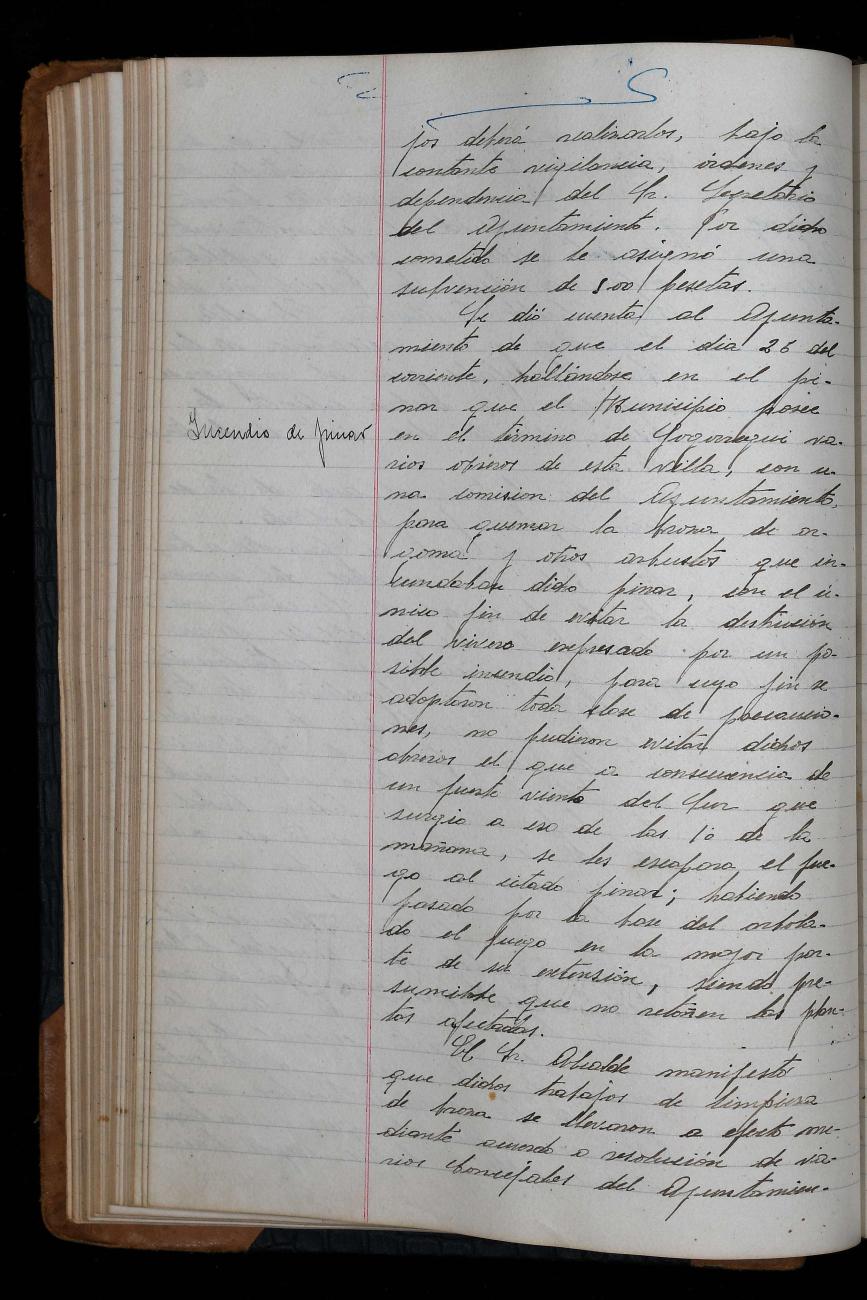 jos deberá realizarlos, bajo la
contante vigilancia, órdenes y
dependencia del Sr. Secretario
del Ayuntamiento. Por dicho
cometido se le asignó una
subvención de 500 pesetas.
Se dió cuenta al Ayunta-
miento de que el dia 26 del
corriente, hallándose en el pi-
nar que el Municipio posee
Incendio de pinar
en el término de va-
rios obreros de esta villa, con u-
na comision del Ayuntamiento,
para quemar la broza de ar-
goma y otros arbustos que in-
cundaban dicho pinar, con el ú-
nico fin de evitar la destrucción
del vivero expresado por un po-
sible incendio, para cuyo fin se
adoptaron toda clase de precaucio-
nes, no pudieron evitar dichos
obreros el que a consecuencia de
un fuerte viento del Sur que
surgio a eso de las 10 de la
mañana, se les escapara el fue-
go al citado pinar; habiendo
pasado por la base del arbola-
do el fuego en la mayor par-
te de su extensión, siendo pre-
sumible que no retoñen las plan-
tas afectadas.
El Sr. Alcalde manifestó
que dichos trabajos de limpieza
de broza se llevaron a efecto me-
diante acuerdo o resolución de va-
rios Concejales del Ayuntamien-